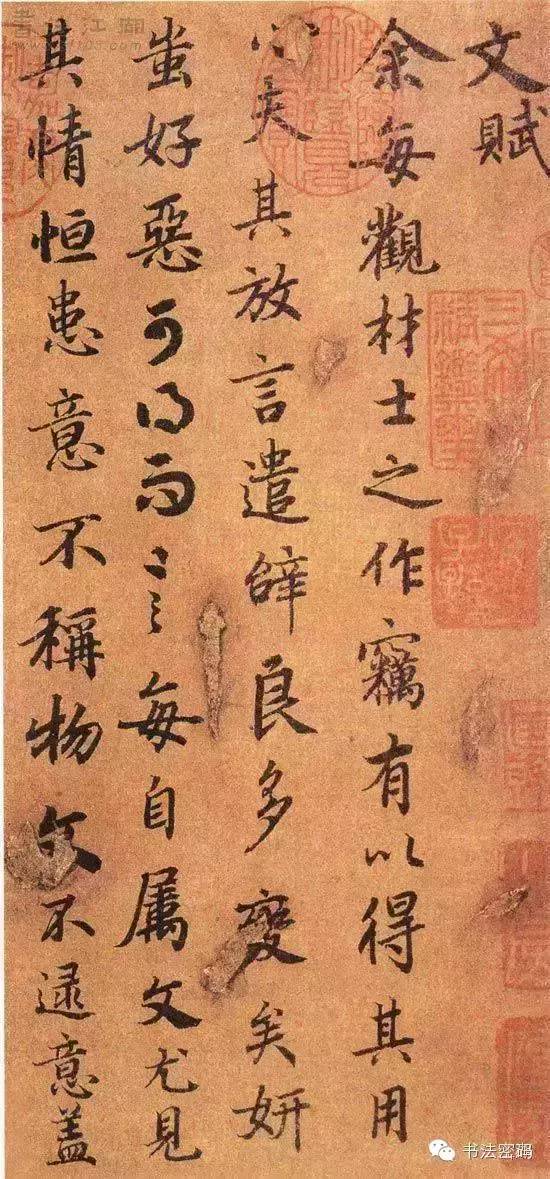 文賦
余每觀材士之作竊有以得其用
心夫其放言遣辭良多變矣妍
蚩好惡可得而言每自屬文尤見
其情恒患意不稱物文不逮意盖
三希堂精鑑璽
宜子孫
书法密码